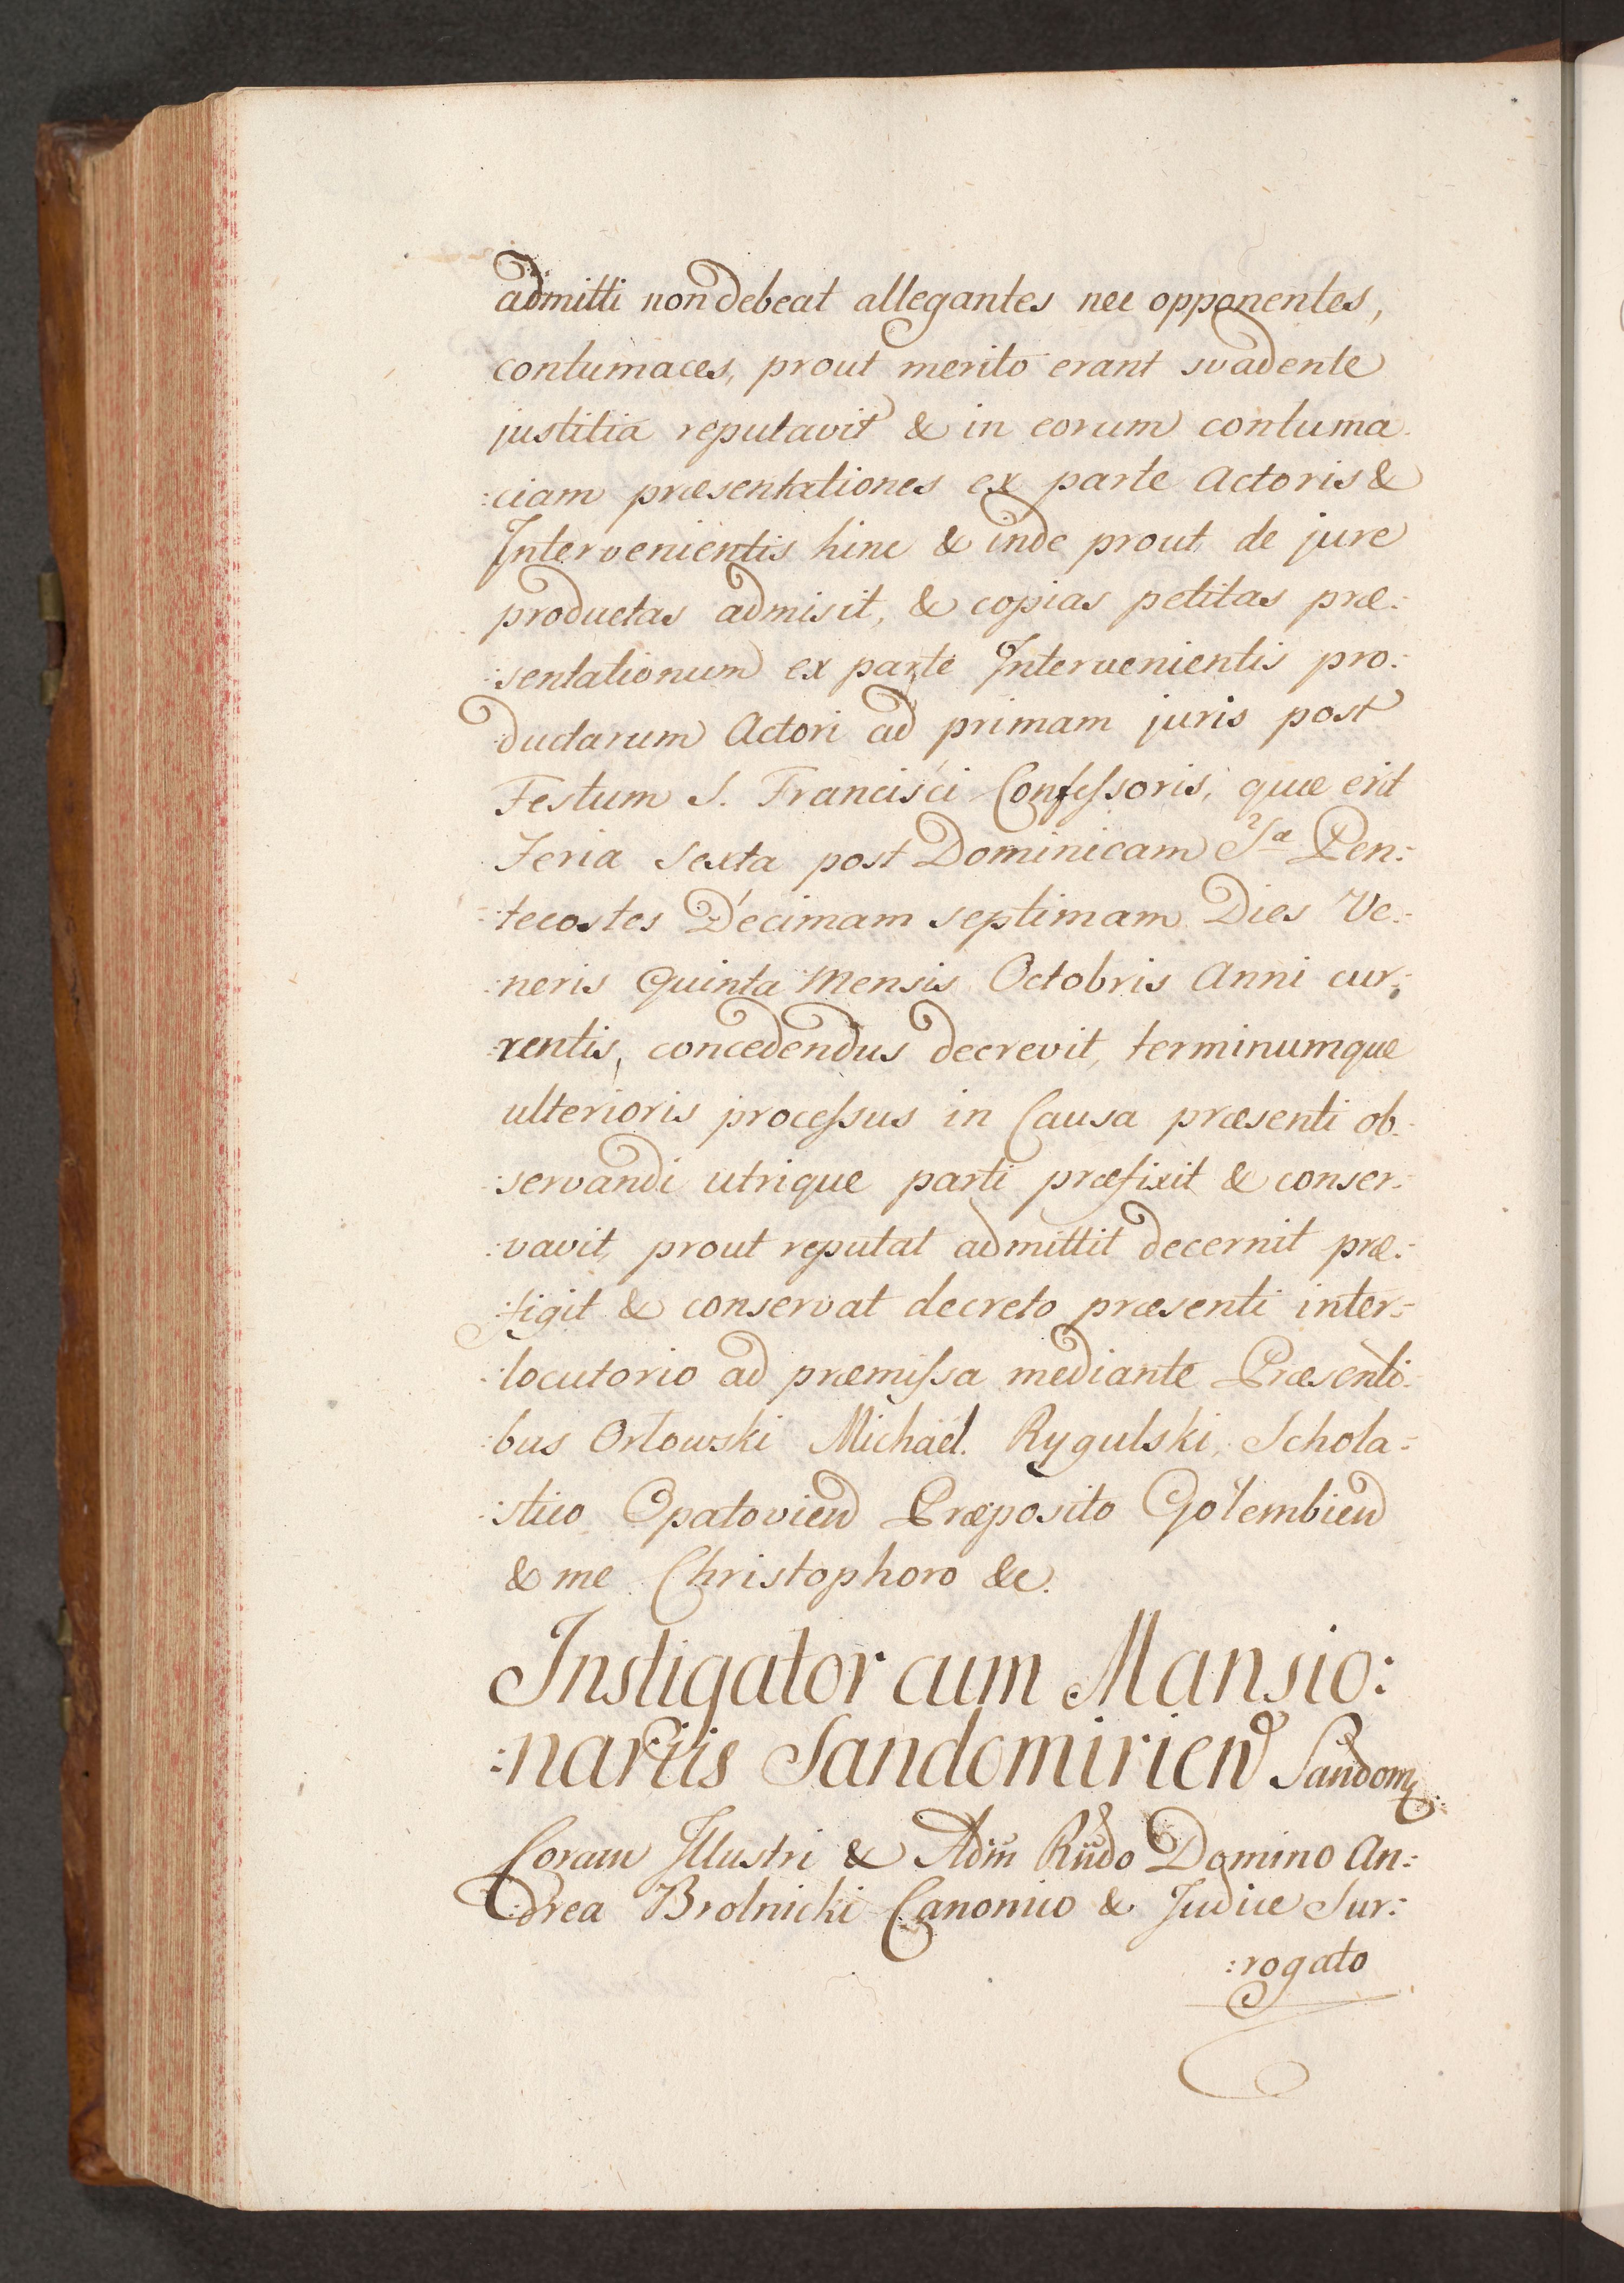 admitti non debeat allegantes nec opponentes,
contumaces, prout merito erant svadente
justitia reputavit & in eorum contuma
:ciam præsentationes ex parte Actoris &
Intervenientis hinc & inde prout de jure
productas admisit, & copias petitas præ:
:sentationum ex parte Intervenientis pro:
:ductarum Actori ad primam juris post
Festum S. Francisci Confessoris, quæ erit
Feria Sexta post Dominicam Pen:
:tecostes Decimam septimam Dies Ve:
:neris Quinta Mensis Octobris Anni cur:
:rentis, concedendus decrevit, terminumque
ulterioris processus in Causa præsenti ob:
:servandi utrique parti præfixit & conser:
:vavit, prout reputat admittit decernit præ:
:figit & conservat decreto præsenti inter:
:locutorio ad præmissa mediante Præsenti:
:bus Orłowski Michäel Rygulski, Schola:
:stico Opatovien Præposito Gołembien
& me Christophoro &c.
Instigator cum Mansio:
:nariis Sandomirien Sandom:
Coram Illustri & Adm Rndo Domino An:
:drea Brolnicki Canonico & Judice Sur:
:rogato